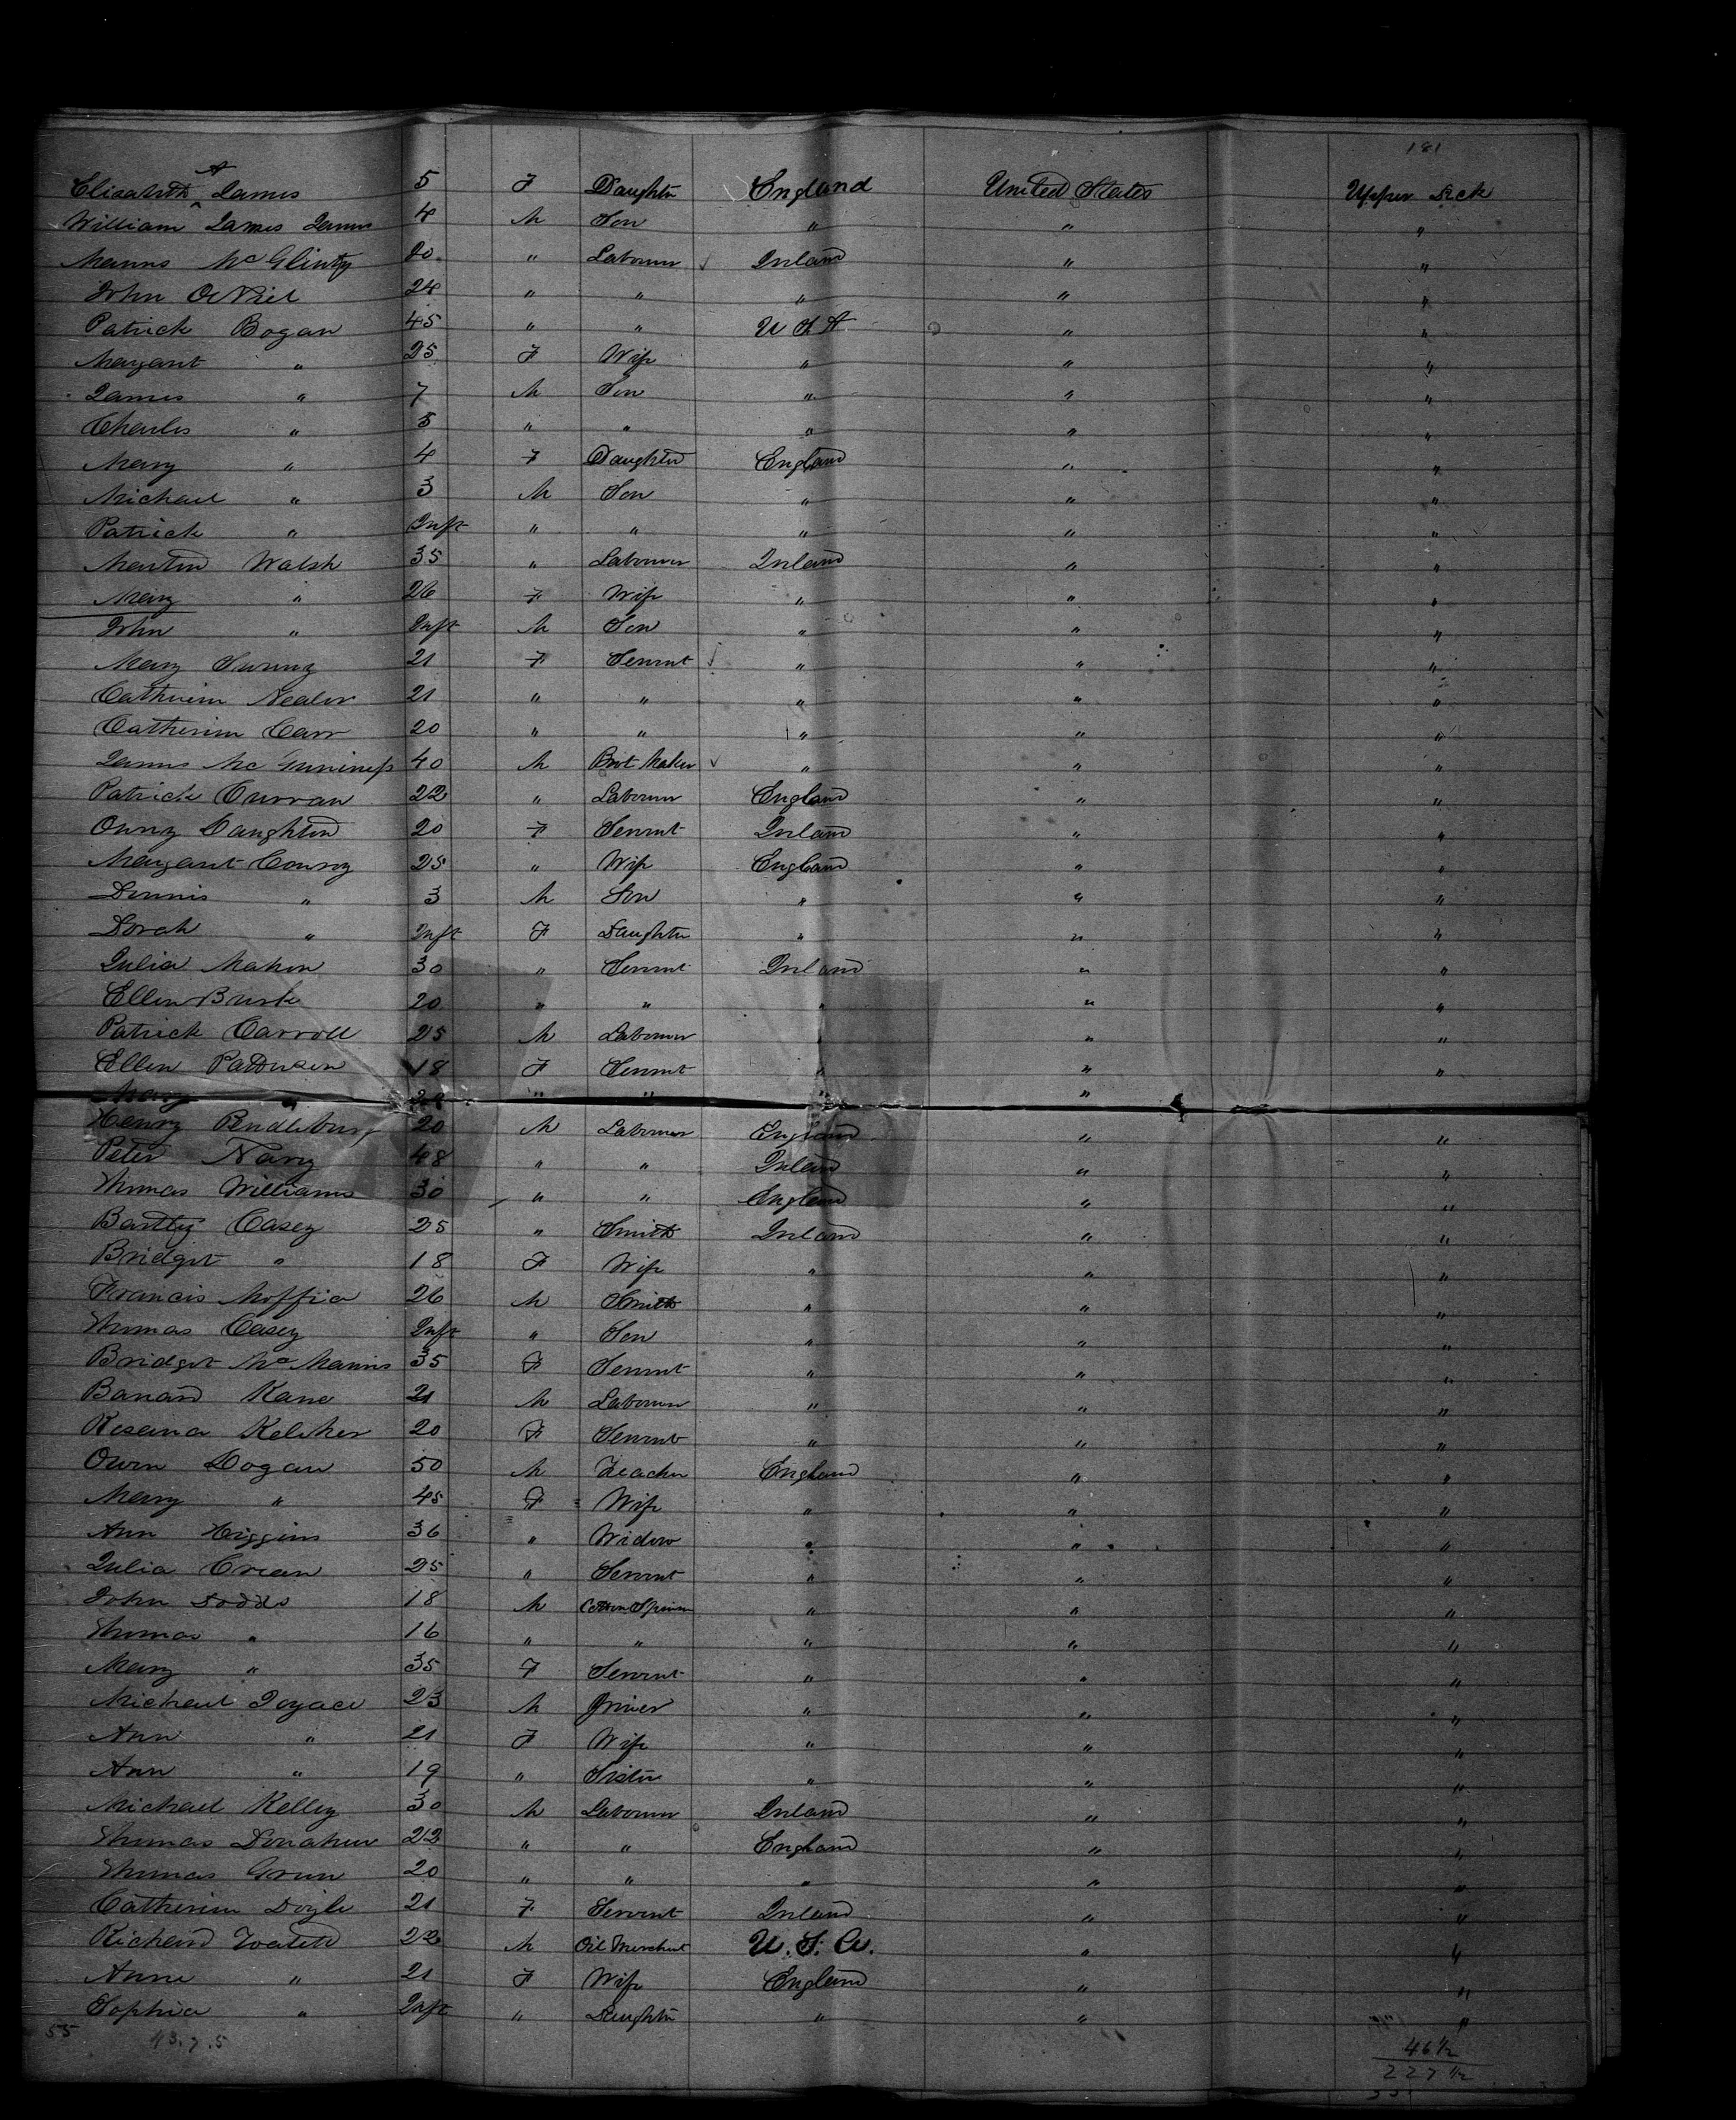 181
Elizabeth A James 5 F Daughter England United States Upper Deck
William James James 4 M Son " " "
Manus McGlinty 20 " Labourer Ireland " "
John O'Niel 24 " " " " "
Patrick Bogan 45 " " U S A " "
Margaret " 25 F Wife " " "
James " 7 M Son " " "
Charles " 5 " " " " "
Mary " 4 F Daughter England " "
Michael " 3 M Son " " "
Patrick " Inft " " " " "
Martin Walsh 35 " Labourer Ireland " "
Mary " 26 F Wife " " "
John " Inft M Son " " "
Mary 21 F Servant " " "
Catherine 21 " " " " "
Catherine Carr 20 " " " " "
James McGuiness 40 M Boot Maker " " "
Patrick Curran 22 " Labourer England " "
20 F Servant Ireland " "
Margaret Conroy 25 " Wife England " "
Dennis " 3 M Son " " "
Dorah " Inft F Daughter " " "
Julia Mahon 30 " Servant Ireland " "
Ellen Burk 20 " " " " "
Patrick Carroll 25 M Labourer " " "
Ellen Patterson 18 F Servant " " "
Mary " " " " " "
Henry 20 M Labourer England " "
Peter Nary 48 " " Ireland " "
Thomas Williams 30 " " England " "
Bartly Casey 25 " Smith Ireland " "
Bridget " 18 F Wife " " "
Francis Moffia 26 M Smith " " "
Thomas Casey Inft " Son " " "
Bridget McManis 35 F Servant " " "
Banard Kane 21 M Labourer " " "
Roseina Keleher 20 F Servant " " "
Owen Dogan 50 M Teacher England " "
Mary " 45 F Wife " " "
Ann Higgins 36 " Widow " " "
Julia Crean 25 " Servant " " "
John Dodds 18 M Cotton Spinner " " "
Thomas " 16 " " " " "
Mary " 35 F Servant " " "
Michael Joyace 23 M " " "
Ann " 21 F Wife " " "
Ann " 19 " Sister " " "
Michael Kelley 30 M Labourer Ireland " "
Thomas Donahue 22 " " England " "
Thomas Green 20 " " " " "
Catherine Doyle 21 F Servant Ireland " "
Richard 22 M Oil Merchant U. S. A. " "
Anne " 21 F Wife England " "
Sophia " Inft " Daughter " " "
55 43.7.5
46 1/2
227 1/2